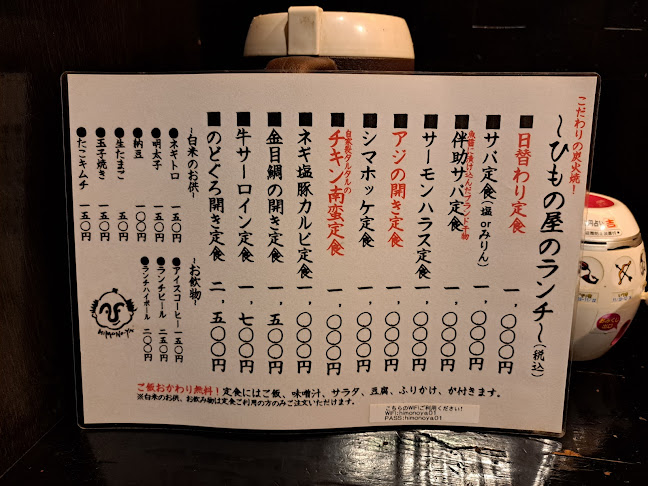 こだわりの炭火焼!
~ひもの屋のランチ~(税込)
■日替わり定食 一,〇〇〇円
■サバ定食(塩orみりん) 一,〇〇〇円
魚醤に漬け込んだブランド干物
■伴助サバ定食 一,〇〇〇円
■サーモンハラス定食 一,〇〇〇円
■アジの開き定食 一,〇〇〇円
■シマホッケ定食 一,〇〇〇円
自家製タルタルの
■チキン南蛮定食 一,〇〇〇円
■ネギ塩豚カルビ定食 一,〇〇〇円
■金目鯛の開き定食 一,五〇〇円
■牛サーロイン定食 一,七〇〇円
■のどぐろ開き定食 二,五〇〇円
~白米のお供~
●ネギトロ 一五〇円
●明太子 一五〇円
●納豆 一〇〇円
●生たまご 五〇円
●玉子焼き 一五〇円
●たこキムチ 一五〇円
~お飲物~
●アイスコーヒー 一五〇円
●ランチビール 二五〇円
●ランチハイボール 二〇〇円
HiMONO-YA
ご飯おかわり無料!定食にはご飯、味噌汁、サラダ、豆腐、ふりかけ、が付きます。
※白米のお供、お飲み物は定食ご利用の方のみご注文いただけます。
こちらのWiFiご利用ください!
WiFi:himonoya01
PASS:himonoya01